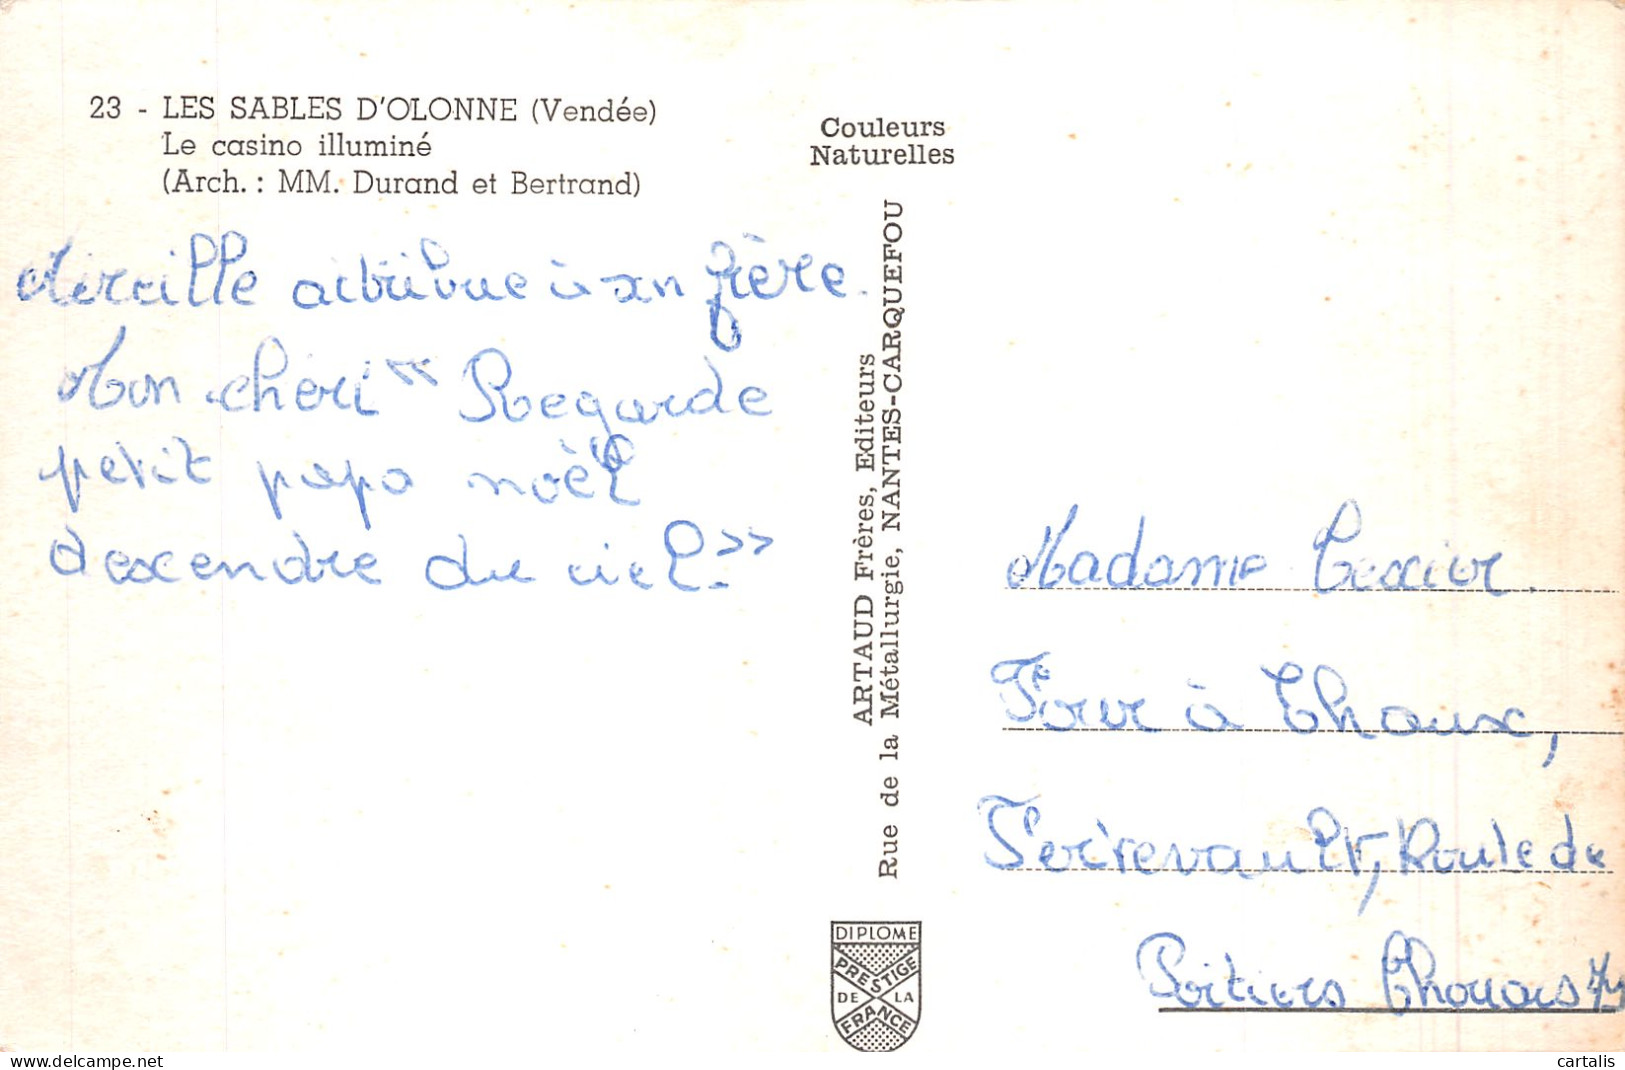 23 - LES SABLES D'OLONNE (Vendée)
Le casino illuminé
(Arch. : MM. Durand et Bertrand)
Mireille attribue à son frère.
Mon chéri « Regarde
petit papa noël
descendre du ciel. »
Couleurs
Naturelles
ARTAUD Frères, Editeurs
Rue de la Métallurgie, NANTES-CARQUEFOU
DIPLOME
PRESTIGE
DE LA
FRANCE
Madame Texier.
Four à Chaux,
Route de
Poitiers Thouars 79
www.delcampe.net
cartalis